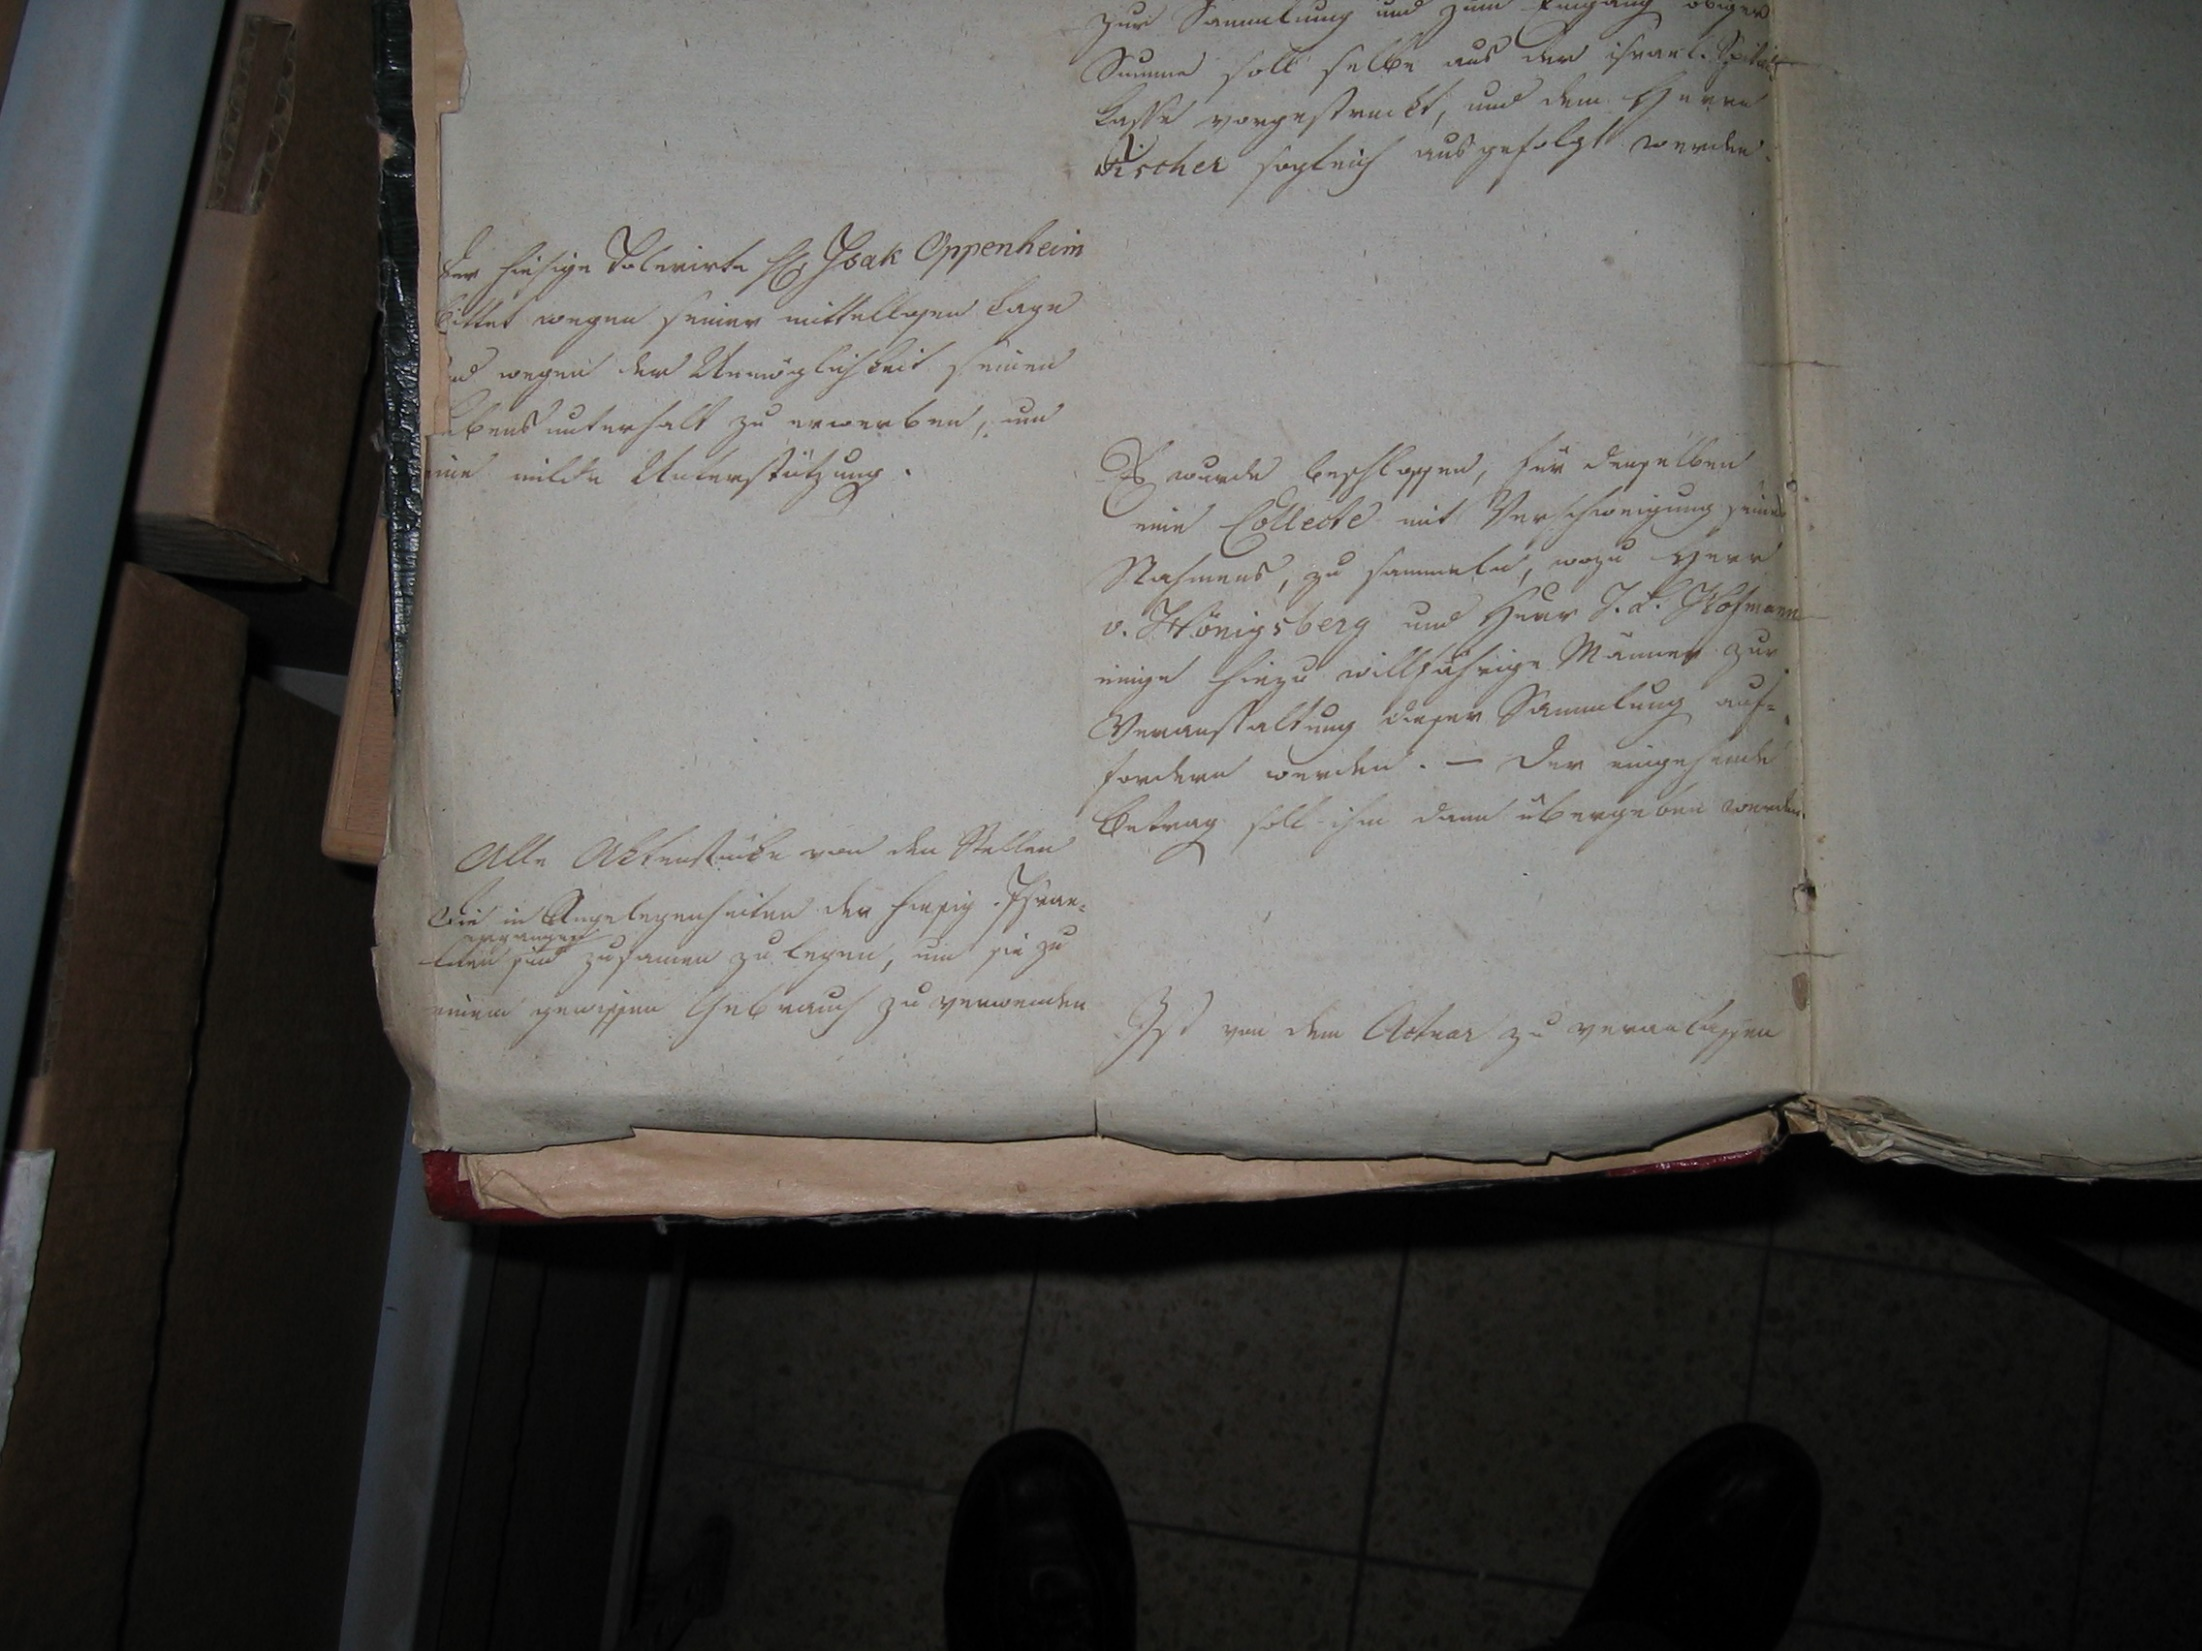 zur Sammlung und zum Eingang obiger
Summe soll selbe aus der israel. Spitals
Cassa vorgestreckt, und dem Herrn
Fischer sogleich ausgefolgt werden.
Der hiesige Tolerirte H. Isak Oppenheim
bittet wegen seiner mittellosen Lage
und wegen der Unmöglichkeit seinen
Lebensunterhalt zu erwerben, um
eine milde Unterstützung.
Es wurde beschlossen, für denselben
eine Collecte mit Verschweigung seines
Nahmens, zu sammeln, wozu Herr
v. Königsberg und Herr J. L. Hofmann
einige hiezu willfährige Männer zur
Veranstaltung dieser Sammlung auf=
fordern werden. — Der eingehende
Betrag soll ihm dann übergeben werden.
Alle Aktenstücke von den Stellen
die in Angelegenheiten der hiesig. Israe=
ergangen
liten sind zusamen zu legen, um sie zu
einem gewissen Gebrauch zu verwenden
Ist von dem Actuar zu veranlassen